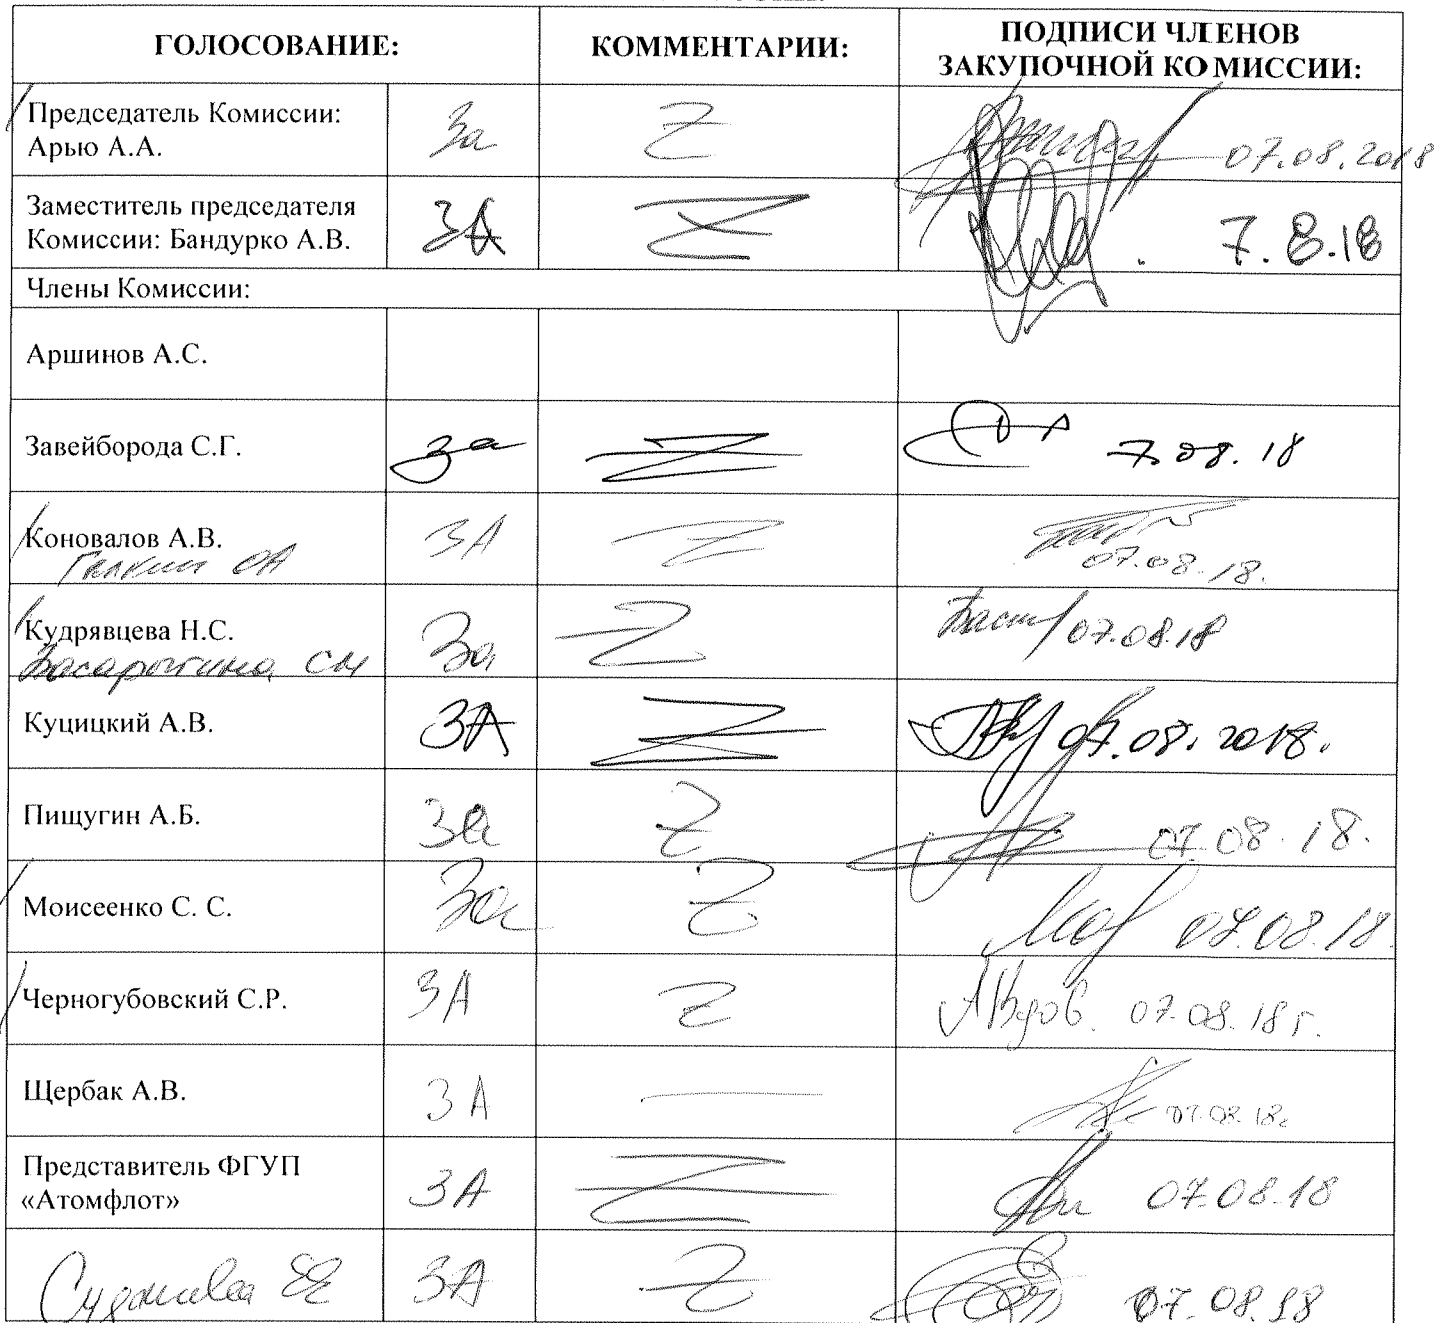 ГОЛОСОВАНИЕ:
КОММЕНТАРИИ:
ПОДПИСИ ЧЛЕНОВ
ЗАКУПОЧНОЙ КОМИССИИ:
Председатель Комиссии:
Арью А.А.
За
Z
07.08.2018
Заместитель председателя
Комиссии: Бандурко А.В.
ЗА
Z
7.8.18
Члены Комиссии:
Аршинов А.С.
Завейборода С.Г.
за
Z
7.08.18
Коновалов А.В.
Галкин ОА
ЗА
Z
07.08.18.
Кудрявцева Н.С.
См
За
Z
07.08.18
Куцицкий А.В.
ЗА
Z
07.08.2018.
Пищугин А.Б.
За
Z
07.08.18.
Моисеенко С. С.
За
Z
07.08.18.
Черногубовский С.Р.
ЗА
Z
07.08.18г.
Щербак А.В.
ЗА
07.08.18г
Представитель ФГУП
«Атомфлот»
ЗА
Z
07.08.18
ЗА
Z
07.08.18